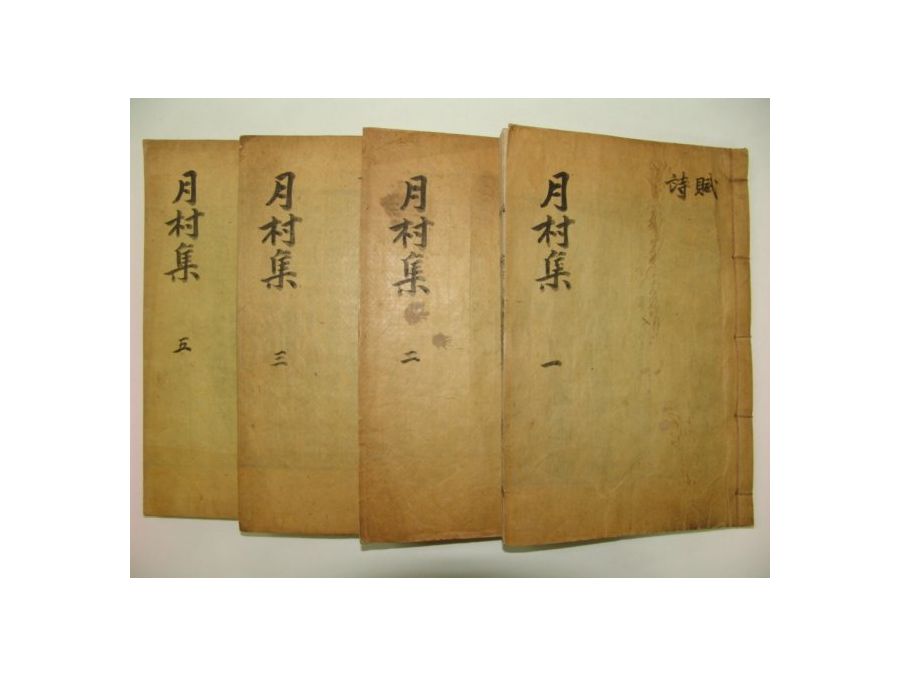 賦
詩
月村集
一
月村集
二
月村集
三
月村集
五